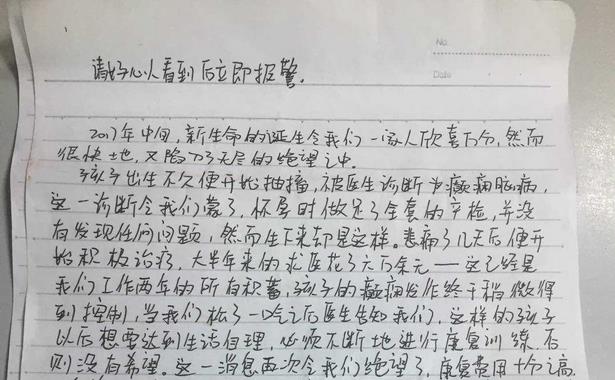 No.
Date
请好心人看到后立即报警。
2017年中间，新生命的诞生令我们一家人欣喜万分，然而
很快地，又陷入了无尽的绝望之中。
孩子出生不久便开始抽搐，被医生诊断为癫痫脑病，
这一诊断令我们蒙了，怀孕时做足了全套的产检，并没
有发现任何问题，然而生下来却是这样。悲痛了几天后便开
始积极治疗，大半年来的求医花了六万余元——这已经是
我们工作两年的所有积蓄，孩子的癫痫发作终于稍微得
到控制，当我们松了一口气之后医生告知我们，这样的孩子
以后想要达到生活自理，必须不断地进行康复训练，否
则没有希望。这一消息再次令我们绝望了，康复费用十分之高